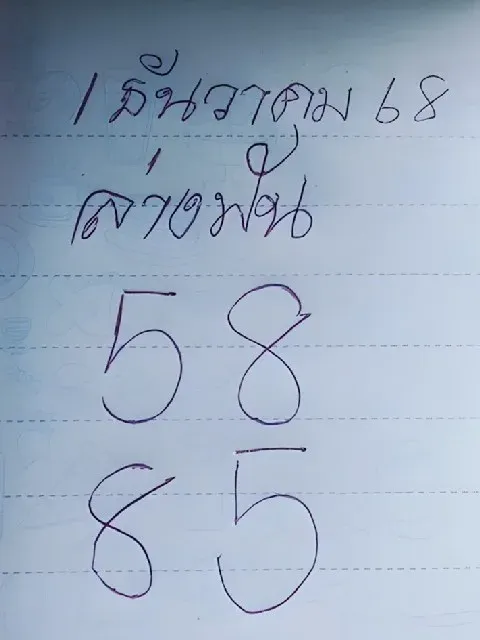 1 ธันวาคม 68
ล่างฟัน
58
85